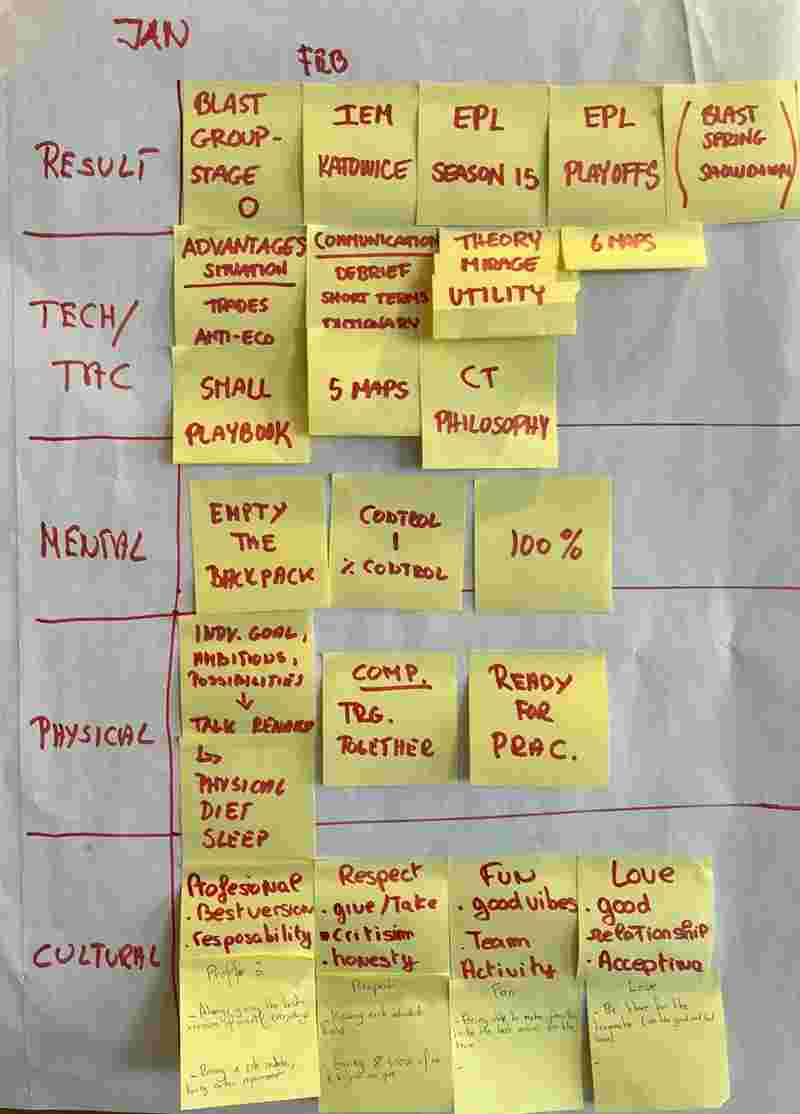 JAN
FEB
RESULT
BLAST
GROUP-
STAGE
O
IEM
KATOWICE
EPL
SEASON 15
EPL
PLAYOFFS
(BLAST
SPRING
SHOWDOWN)
TECH/
TAC
ADVANTAGES
SITUATION
TRADES
ANTI-ECO
SMALL
PLAYBOOK
COMMUNICATION
DEBRIEF
SHORT TERMS
DICTIONARY
5 MAPS
THEORY
MIRAGE
UTILITY
CT
PHILOSOPHY
6 MAPS
MENTAL
EMPTY
THE
BACKPACK
CONTROL
% CONTROL
100 %
PHYSICAL
INDV. GOAL,
AMBITIONS,
POSSIBILITIES
↓
TALK
↳
PHYSICAL
DIET
SLEEP
COMP.
TRG.
TOGETHER
READY
FOR
PRAC.
CULTURAL
Profesional
. Best version
. resposability
Respect
. give/Take
. critisim
. honesty
FUN
. good vibes
. Team
Activity
Love
. good
relationship
. Accepting
Respect
Fun
Love